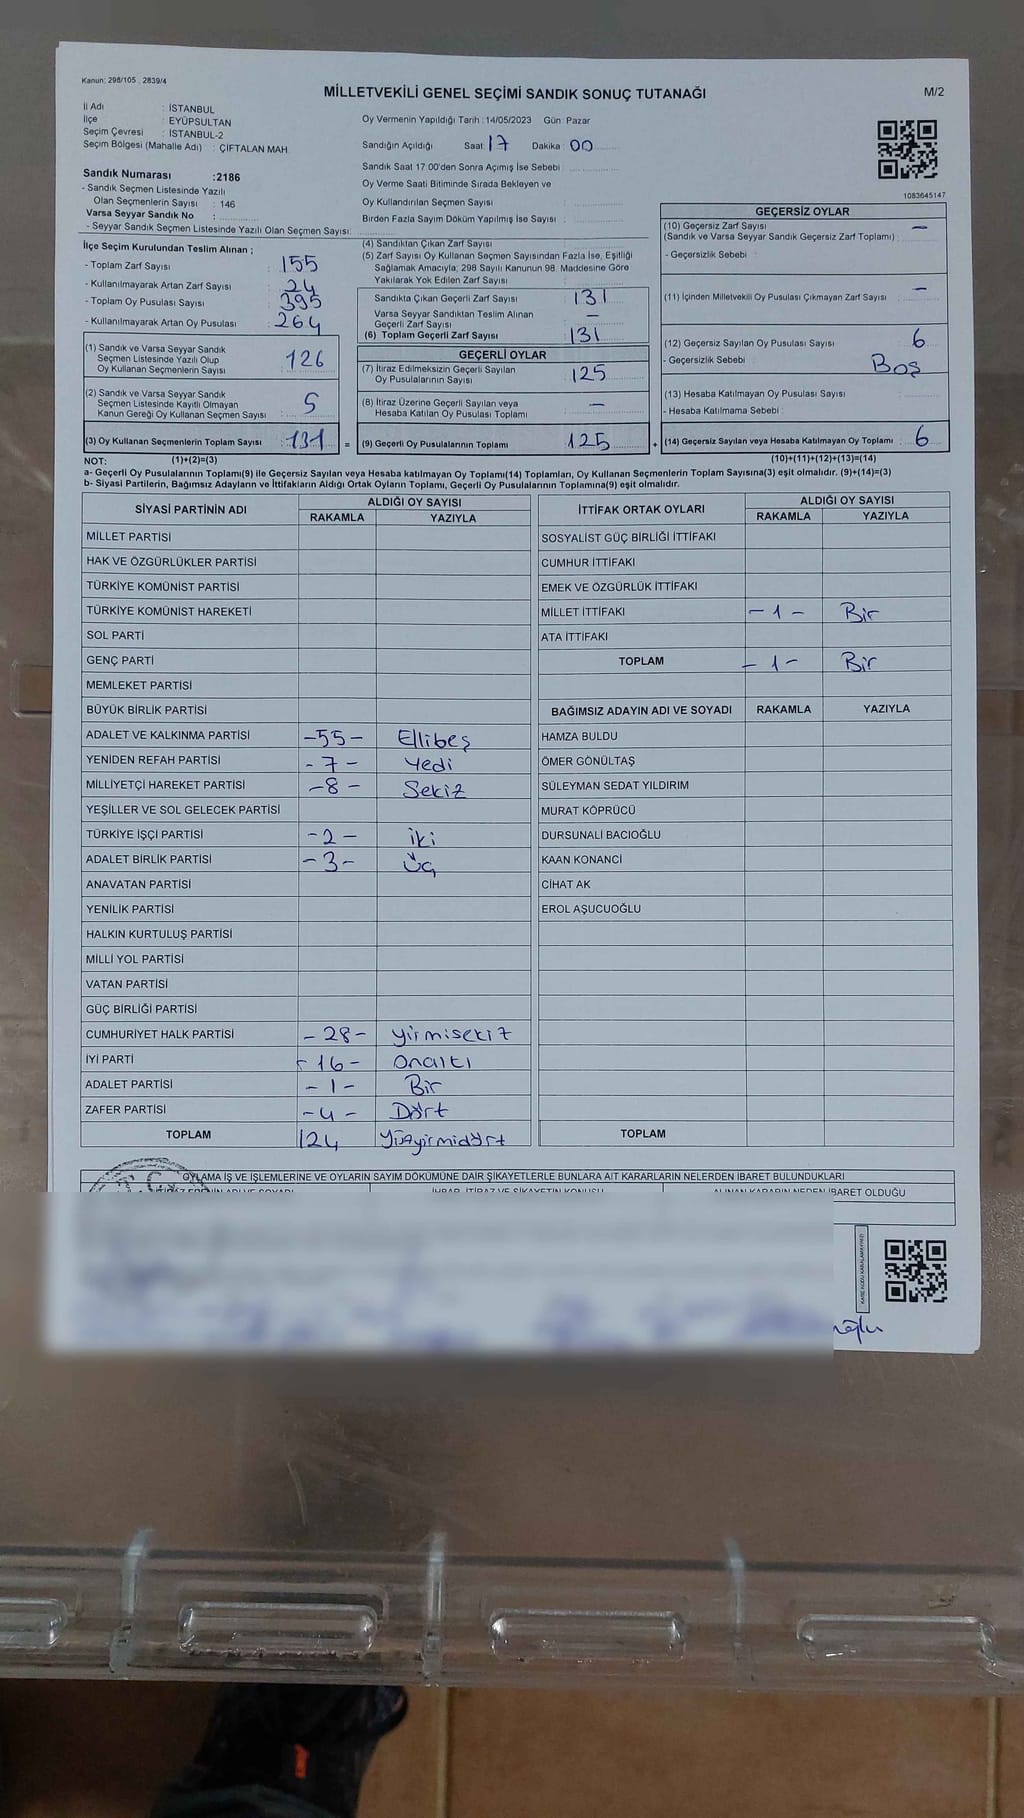 Kanun: 298/105 2839/4
MİLLETVEKİLİ GENEL SEÇİMİ SANDIK SONUÇ TUTANAĞI
M/2
İl Adı : İSTANBUL
İlçe : EYÜPSULTAN
Seçim Çevresi : İSTANBUL-2
Seçim Bölgesi (Mahalle Adı) : ÇİFTALAN MAH.
Sandık Numarası :2186
- Sandık Seçmen Listesinde Yazılı
Olan Seçmenlerin Sayısı : 146
Varsa Seyyar Sandık No :
- Seyyar Sandık Seçmen Listesinde Yazılı Olan Seçmen Sayısı:
Oy Vermenin Yapıldığı Tarih :14/05/2023 Gün Pazar
Sandığın Açıldığı Saat 17 Dakika 00
Sandık Saat 17:00'den Sonra Açımış İse Sebebi :
Oy Verme Saati Bitiminde Sırada Bekleyen ve
Oy Kullandırılan Seçmen Sayısı :
Birden Fazla Sayım Döküm Yapılmış İse Sayısı :
1083645147
İlçe Seçim Kurulundan Teslim Alınan ;
- Toplam Zarf Sayısı : 155
- Kullanılmayarak Artan Zarf Sayısı : 24
- Toplam Oy Pusulası Sayısı : 395
- Kullanılmayarak Artan Oy Pusulası : 264
(1) Sandık ve Varsa Seyyar Sandık
Seçmen Listesinde Yazılı Olup
Oy Kullanan Seçmenlerin Sayısı : 126
(2) Sandık ve Varsa Seyyar Sandık
Seçmen Listesinde Kayıtlı Olmayan
Kanun Gereği Oy Kullanan Seçmen Sayısı : 5
(3) Oy Kullanan Seçmenlerin Toplam Sayısı : 131 =
(4) Sandıktan Çıkan Zarf Sayısı :
(5) Zarf Sayısı Oy Kullanan Seçmen Sayısından Fazla İse, Eşitliği
Sağlamak Amacıyla; 298 Sayılı Kanunun 98. Maddesine Göre
Yakılarak Yok Edilen Zarf Sayısı :
Sandıkta Çıkan Geçerli Zarf Sayısı : 131
Varsa Seyyar Sandıktan Teslim Alınan
Geçerli Zarf Sayısı : –
(6) Toplam Geçerli Zarf Sayısı : 131
GEÇERLİ OYLAR
(7) İtiraz Edilmeksizin Geçerli Sayılan
Oy Pusulalarının Sayısı : 125
(8) İtiraz Üzerine Geçerli Sayılan veya
Hesaba Katılan Oy Pusulası Toplamı : –
(9) Geçerli Oy Pusulalarının Toplamı : 125 +
GEÇERSİZ OYLAR
(10) Geçersiz Zarf Sayısı –
(Sandık ve Varsa Seyyar Sandık Geçersiz Zarf Toplamı) :
- Geçersizlik Sebebi :
(11) İçinden Milletvekili Oy Pusulası Çıkmayan Zarf Sayısı : –
(12) Geçersiz Sayılan Oy Pusulası Sayısı : 6
- Geçersizlik Sebebi : Boş
(13) Hesaba Katılmayan Oy Pusulası Sayısı :
- Hesaba Katılmama Sebebi :
(14) Geçersiz Sayılan veya Hesaba Katılmayan Oy Toplamı : 6
NOT: (1)+(2)=(3) (10)+(11)+(12)+(13)=(14)
a- Geçerli Oy Pusulalarının Toplamı(9) ile Geçersiz Sayılan veya Hesaba katılmayan Oy Toplamı(14) Toplamları, Oy Kullanan Seçmenlerin Toplam Sayısına(3) eşit olmalıdır. (9)+(14)=(3)
b- Siyasi Partilerin, Bağımsız Adayların ve İttifakların Aldığı Ortak Oyların Toplamı, Geçerli Oy Pusulalarının Toplamına(9) eşit olmalıdır.
SİYASİ PARTİNİN ADI ALDIĞI OY SAYISI
RAKAMLA YAZIYLA
MİLLET PARTİSİ
HAK VE ÖZGÜRLÜKLER PARTİSİ
TÜRKİYE KOMÜNİST PARTİSİ
TÜRKİYE KOMÜNİST HAREKETİ
SOL PARTİ
GENÇ PARTİ
MEMLEKET PARTİSİ
BÜYÜK BİRLİK PARTİSİ
ADALET VE KALKINMA PARTİSİ -55- Ellibeş
YENİDEN REFAH PARTİSİ - 7 - Yedi
MİLLİYETÇİ HAREKET PARTİSİ -8- Sekiz
YEŞİLLER VE SOL GELECEK PARTİSİ
TÜRKİYE İŞÇİ PARTİSİ -2- iki
ADALET BİRLİK PARTİSİ -3- üç
ANAVATAN PARTİSİ
YENİLİK PARTİSİ
HALKIN KURTULUŞ PARTİSİ
MİLLİ YOL PARTİSİ
VATAN PARTİSİ
GÜÇ BİRLİĞİ PARTİSİ
CUMHURİYET HALK PARTİSİ - 28- yirmisekiz
İYİ PARTİ - 16 - Onaltı
ADALET PARTİSİ - 1 - Bir
ZAFER PARTİSİ -4- Dört
TOPLAM 124 Yüzyirmidört
İTTİFAK ORTAK OYLARI ALDIĞI OY SAYISI
RAKAMLA YAZIYLA
SOSYALİST GÜÇ BİRLİĞİ İTTİFAKI
CUMHUR İTTİFAKI
EMEK VE ÖZGÜRLÜK İTTİFAKI
MİLLET İTTİFAKI - 1 - Bir
ATA İTTİFAKI
TOPLAM - 1 - Bir
BAĞIMSIZ ADAYIN ADI VE SOYADI RAKAMLA YAZIYLA
HAMZA BULDU
ÖMER GÖNÜLTAŞ
SÜLEYMAN SEDAT YILDIRIM
MURAT KÖPRÜCÜ
DURSUNALİ BACIOĞLU
KAAN KONANCİ
CİHAT AK
EROL AŞUCUOĞLU
TOPLAM
OYLAMA İŞ VE İŞLEMLERİNE VE OYLARIN SAYIM DÖKÜMÜNE DAİR ŞİKAYETLERLE BUNLARA AİT KARARLARIN NELERDEN İBARET BULUNDUKLARI
İHBAR, İTİRAZ VE ŞİKAYETİN KONUSU ALINAN KARARIN NEDEN İBARET OLDUĞU
T.C.
KARE KODU KARALAMAYINIZ!